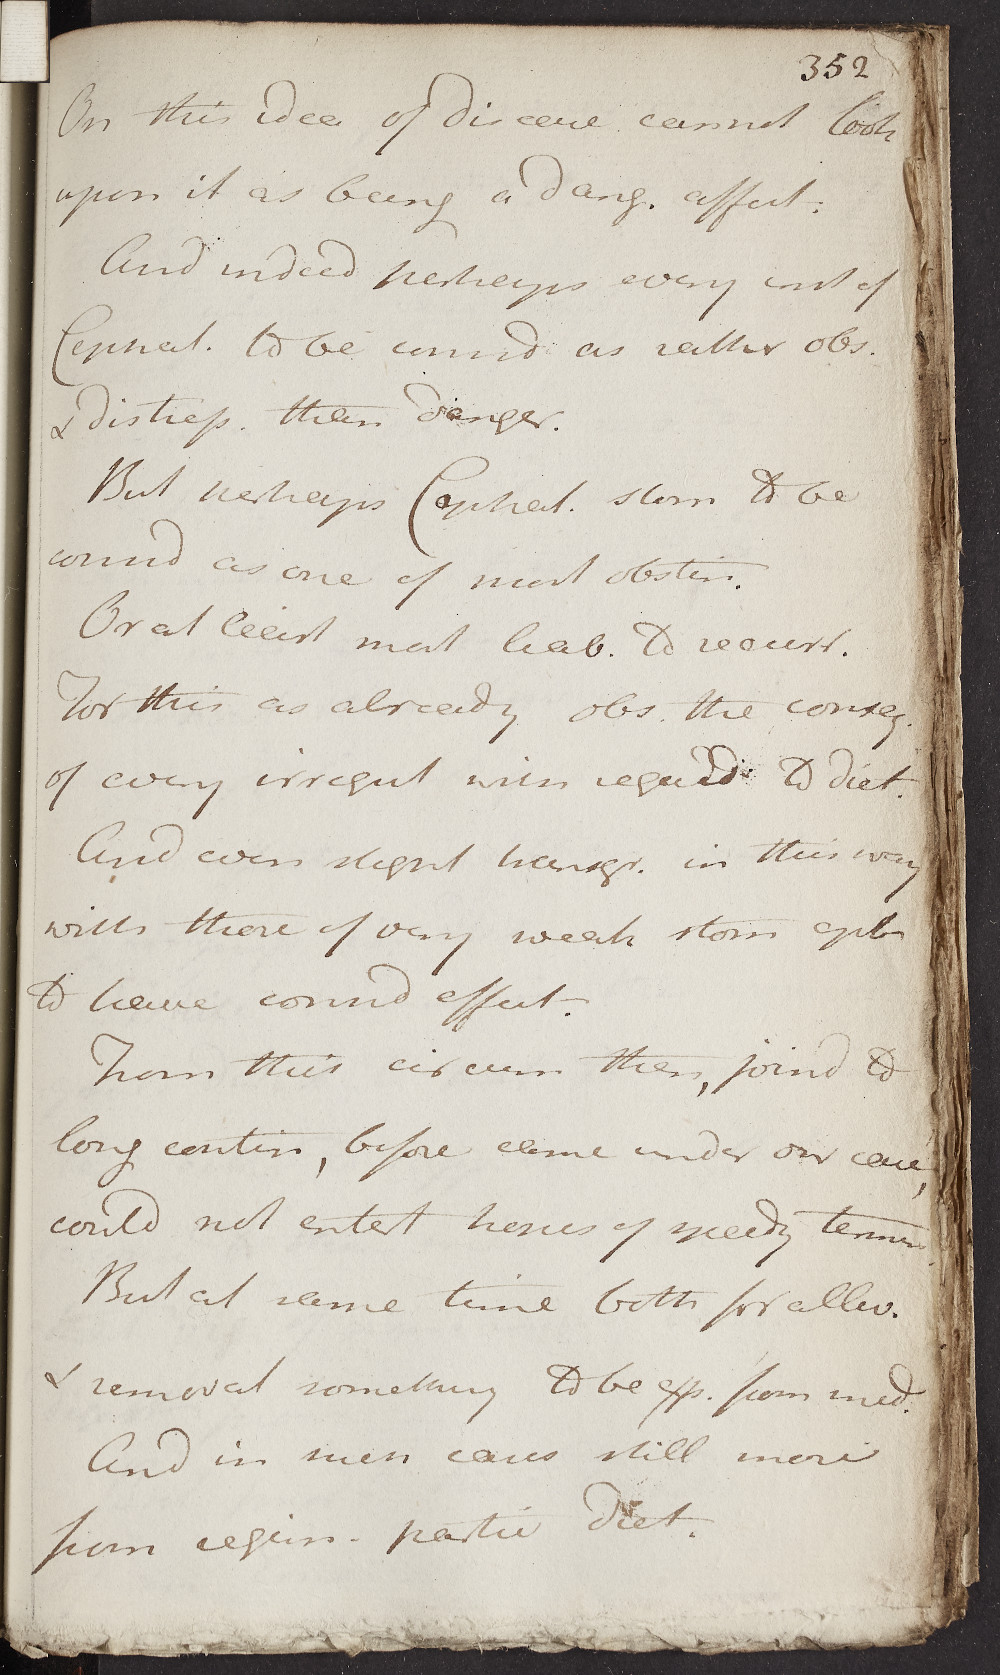 352
On this idea of disease cannot look
upon it as being a dang. affect.
And indeed perhaps every inst of
Cephal. to be consid as rather obs.
& distress. than danger.
But perhaps Cephal. stom to be
consid as one of most obstin.
Or at least most liab. to recurr.
For this as already obs. the conseq.
of every irregul with regard to diet.
And even slight transgr. in this way
with those of very weak stom apt
to have consid effect.
From this circum then, joind to
long contin, before came under our care,
could not entert hopes of speedy termin.
But at same time both for allev.
& removal something to be exp. from med.
And in such cases still more
from regim. partic diet.